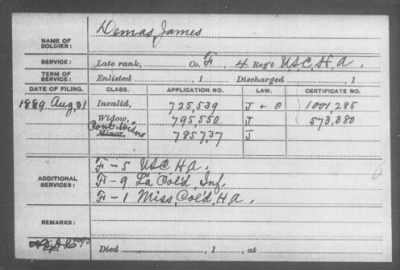 NAME OF SOLDIER: Demas, James
SERVICE: Late rank, Co. F, 4 Reg't U.S.C.H.A.
TERM OF SERVICE: Enlisted , 1 Discharged , 1
DATE OF FILING. CLASS. APPLICATION NO. LAW. CERTIFICATE NO.
1889 Aug. 31 Invalid, 725,539 J + O 1001,285
Widow, 795,550 J 573,380
Cont. Wid. Minor, 785737 J
ADDITIONAL SERVICES: F-5 U.S.C.H.A.
F-9 La Col'd Inf.
F-1 Miss. Col'd, H.A.
REMARKS:
Died , 1 , at